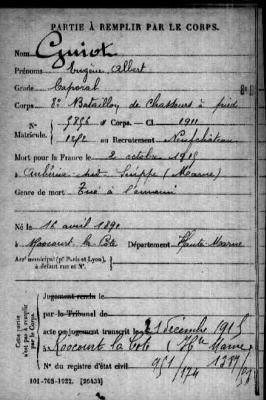 PARTIE À REMPLIR PAR LE CORPS.
Nom Guiot
Prénoms Eugène Albert
Grade Caporal
Corps 2e Bataillon de Chasseurs à pied
N° 5856 au Corps. — Cl 1911
Matricule. 1272 au Recrutement Neufchâteau
Mort pour la France le 2 octobre 1915
à Aubérive sur Suippe (Marne)
Genre de mort Tué à l'ennemi
Né le 16 avril 1891
à Roocourt la Côte Département Haute Marne
Arr' municipal (pr Paris et Lyon),
à défaut rue et N°
Cette partie
n'est pas à remplir
par le Corps.
Jugement rendu le
par le Tribunal de
acte ou jugement transcrit le 21 décembre 1915
à Roocourt la Côte (Hte Marne)
N° du registre d'état civil
101-708-1922. [26434]